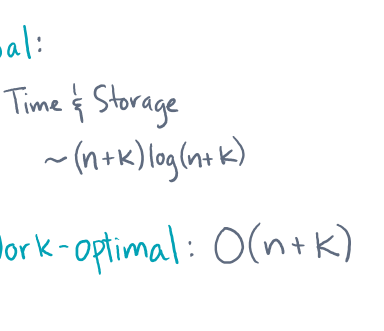 al:
Time & Storage
~(n+k)log(n+k)
ork-optimal: O(n+k)